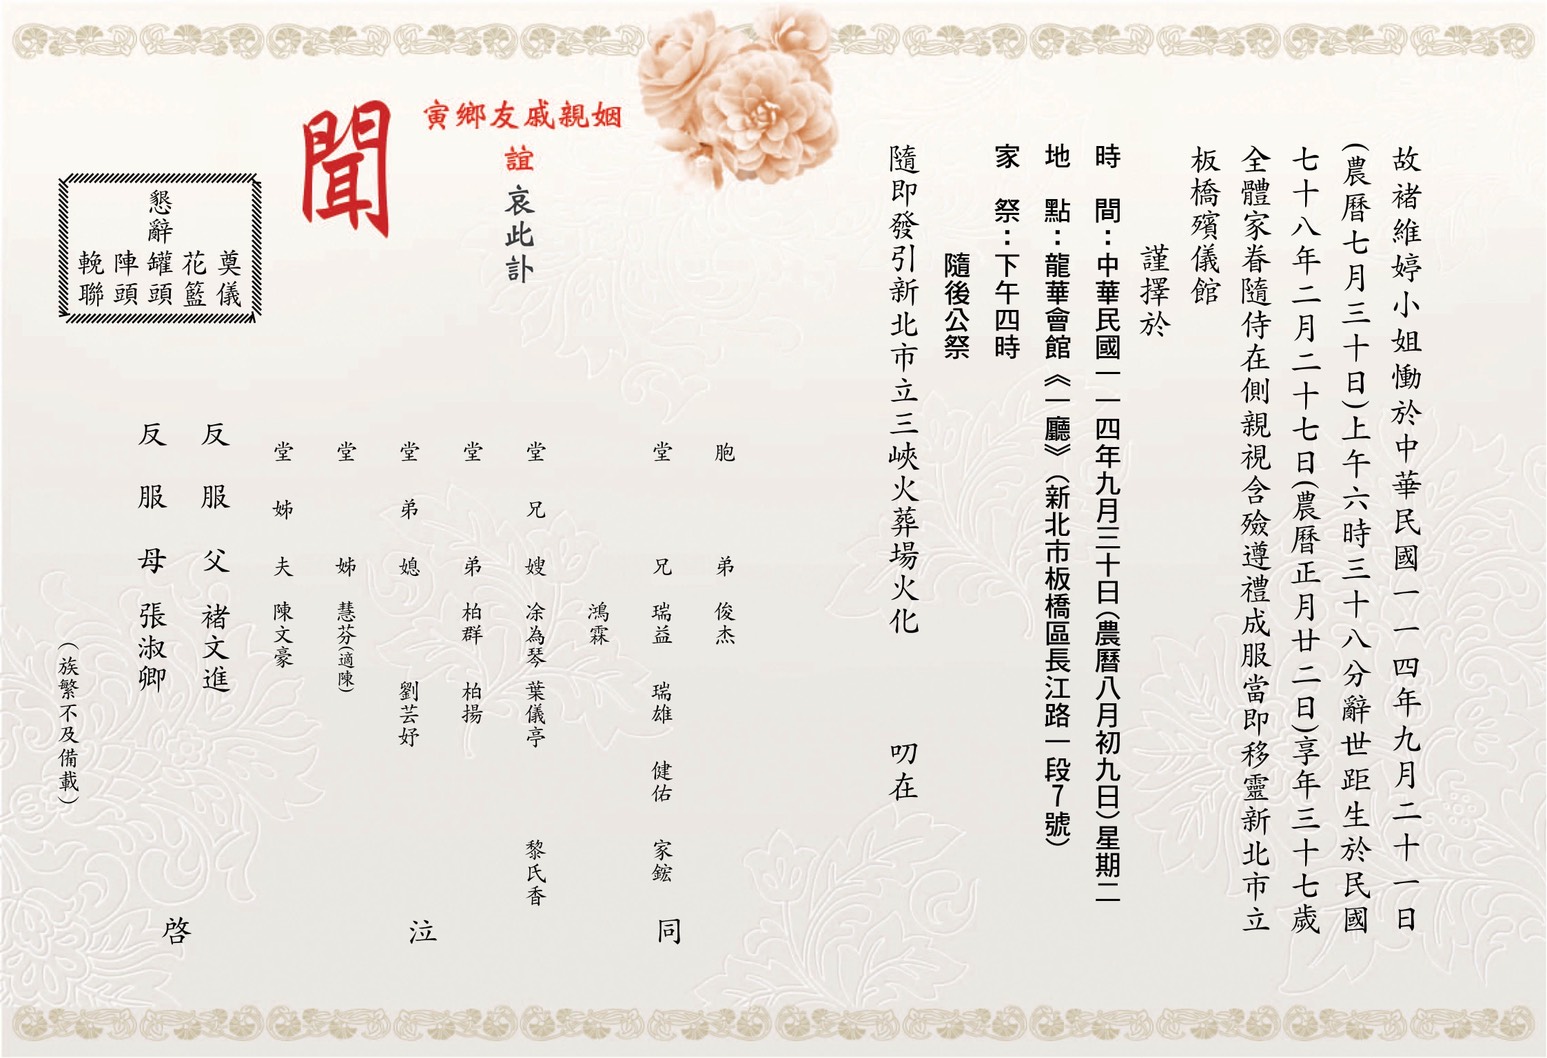 故褚維婷小姐慟於中華民國一一四年九月二十一日
(農曆七月三十日)上午六時三十八分辭世距生於民國
七十八年二月二十七日(農曆正月廿二日)享年三十七歲
全體家眷隨侍在側親視含殮遵禮成服當即移靈新北市立
板橋殯儀館
謹擇於
時　間：中華民國一一四年九月三十日(農曆八月初九日)星期二
地　點：龍華會館《一廳》(新北市板橋區長江路一段7號)
家　祭：下午四時
隨後公祭
隨即發引新北市立三峽火葬場火化　叨在
姻親戚友鄉寅
誼
哀此訃
聞
胞弟 俊杰
堂兄 瑞益 瑞雄 健佑 家鋐
鴻霖
堂兄嫂 凃為琴 葉儀亭 黎氏香
堂弟 柏群 柏揚
堂弟媳 劉芸妤
堂姊 慧芬(適陳)
堂姊夫 陳文豪
反服父 褚文進
反服母 張淑卿
(族繁不及備載)
同　泣　啓
懇辭
奠儀
花籃
罐頭
陣頭
輓聯